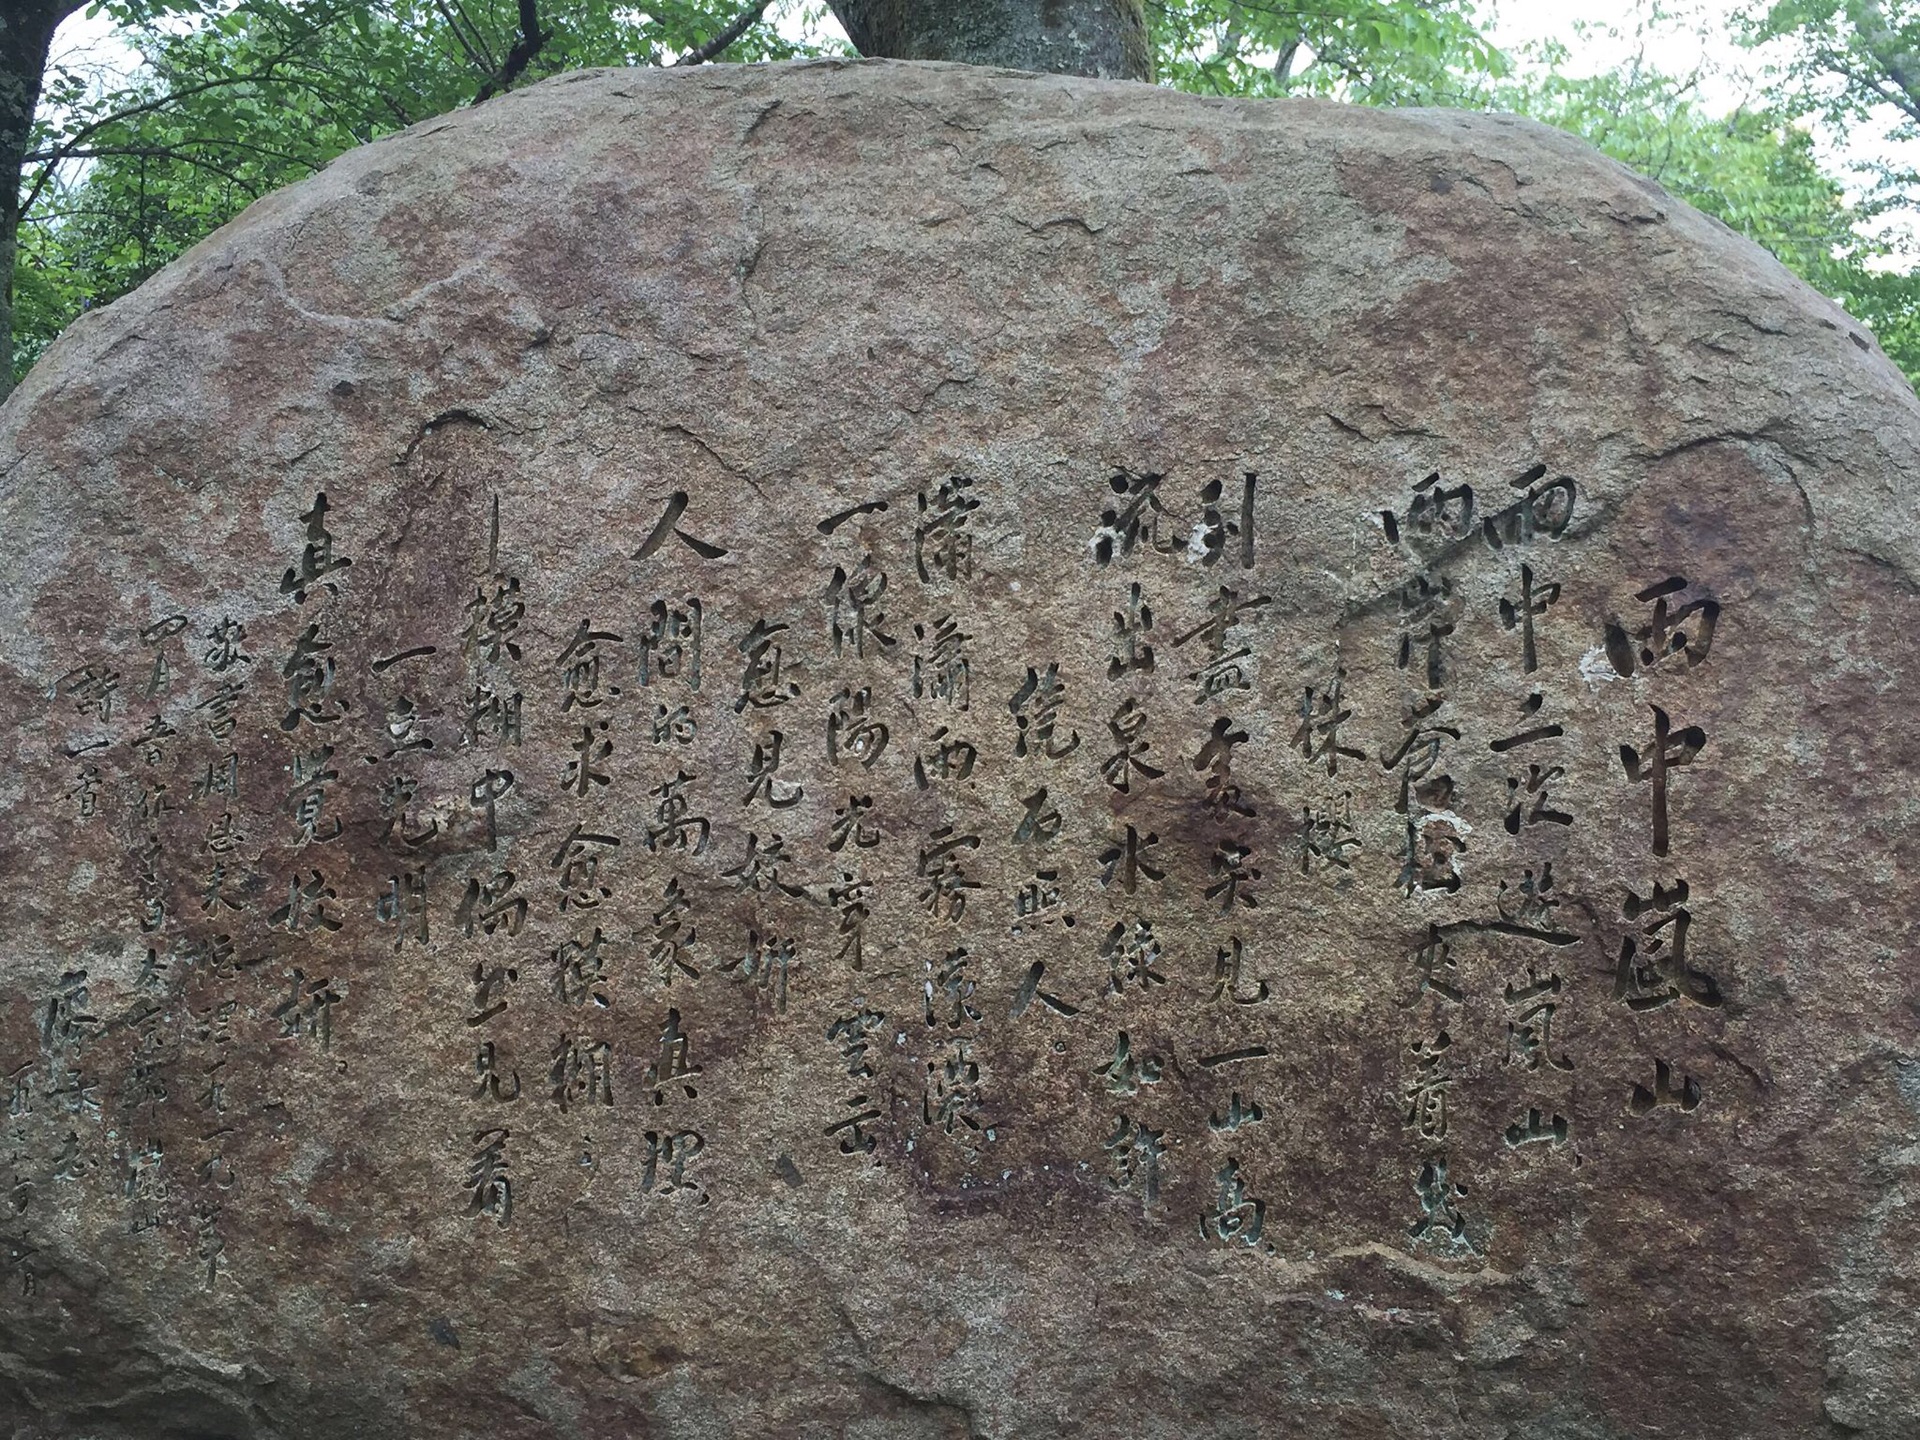 雨中嵐山
雨中二次遊嵐山
兩岸蒼松夾着幾
株櫻
到盡處突見一山高
流出泉水綠如許
繞石照人。
瀟瀟雨霧濛濃
一線陽光穿雲出
愈見姣姸
人間的萬象真理
愈求愈模糊
｜模糊中偶然見着
一点光明
真愈覺姣姸。
敬書周恩來總理一九一九年
四月五日作於日本京都嵐山
詩一首
廖承志
一九七八年十一月